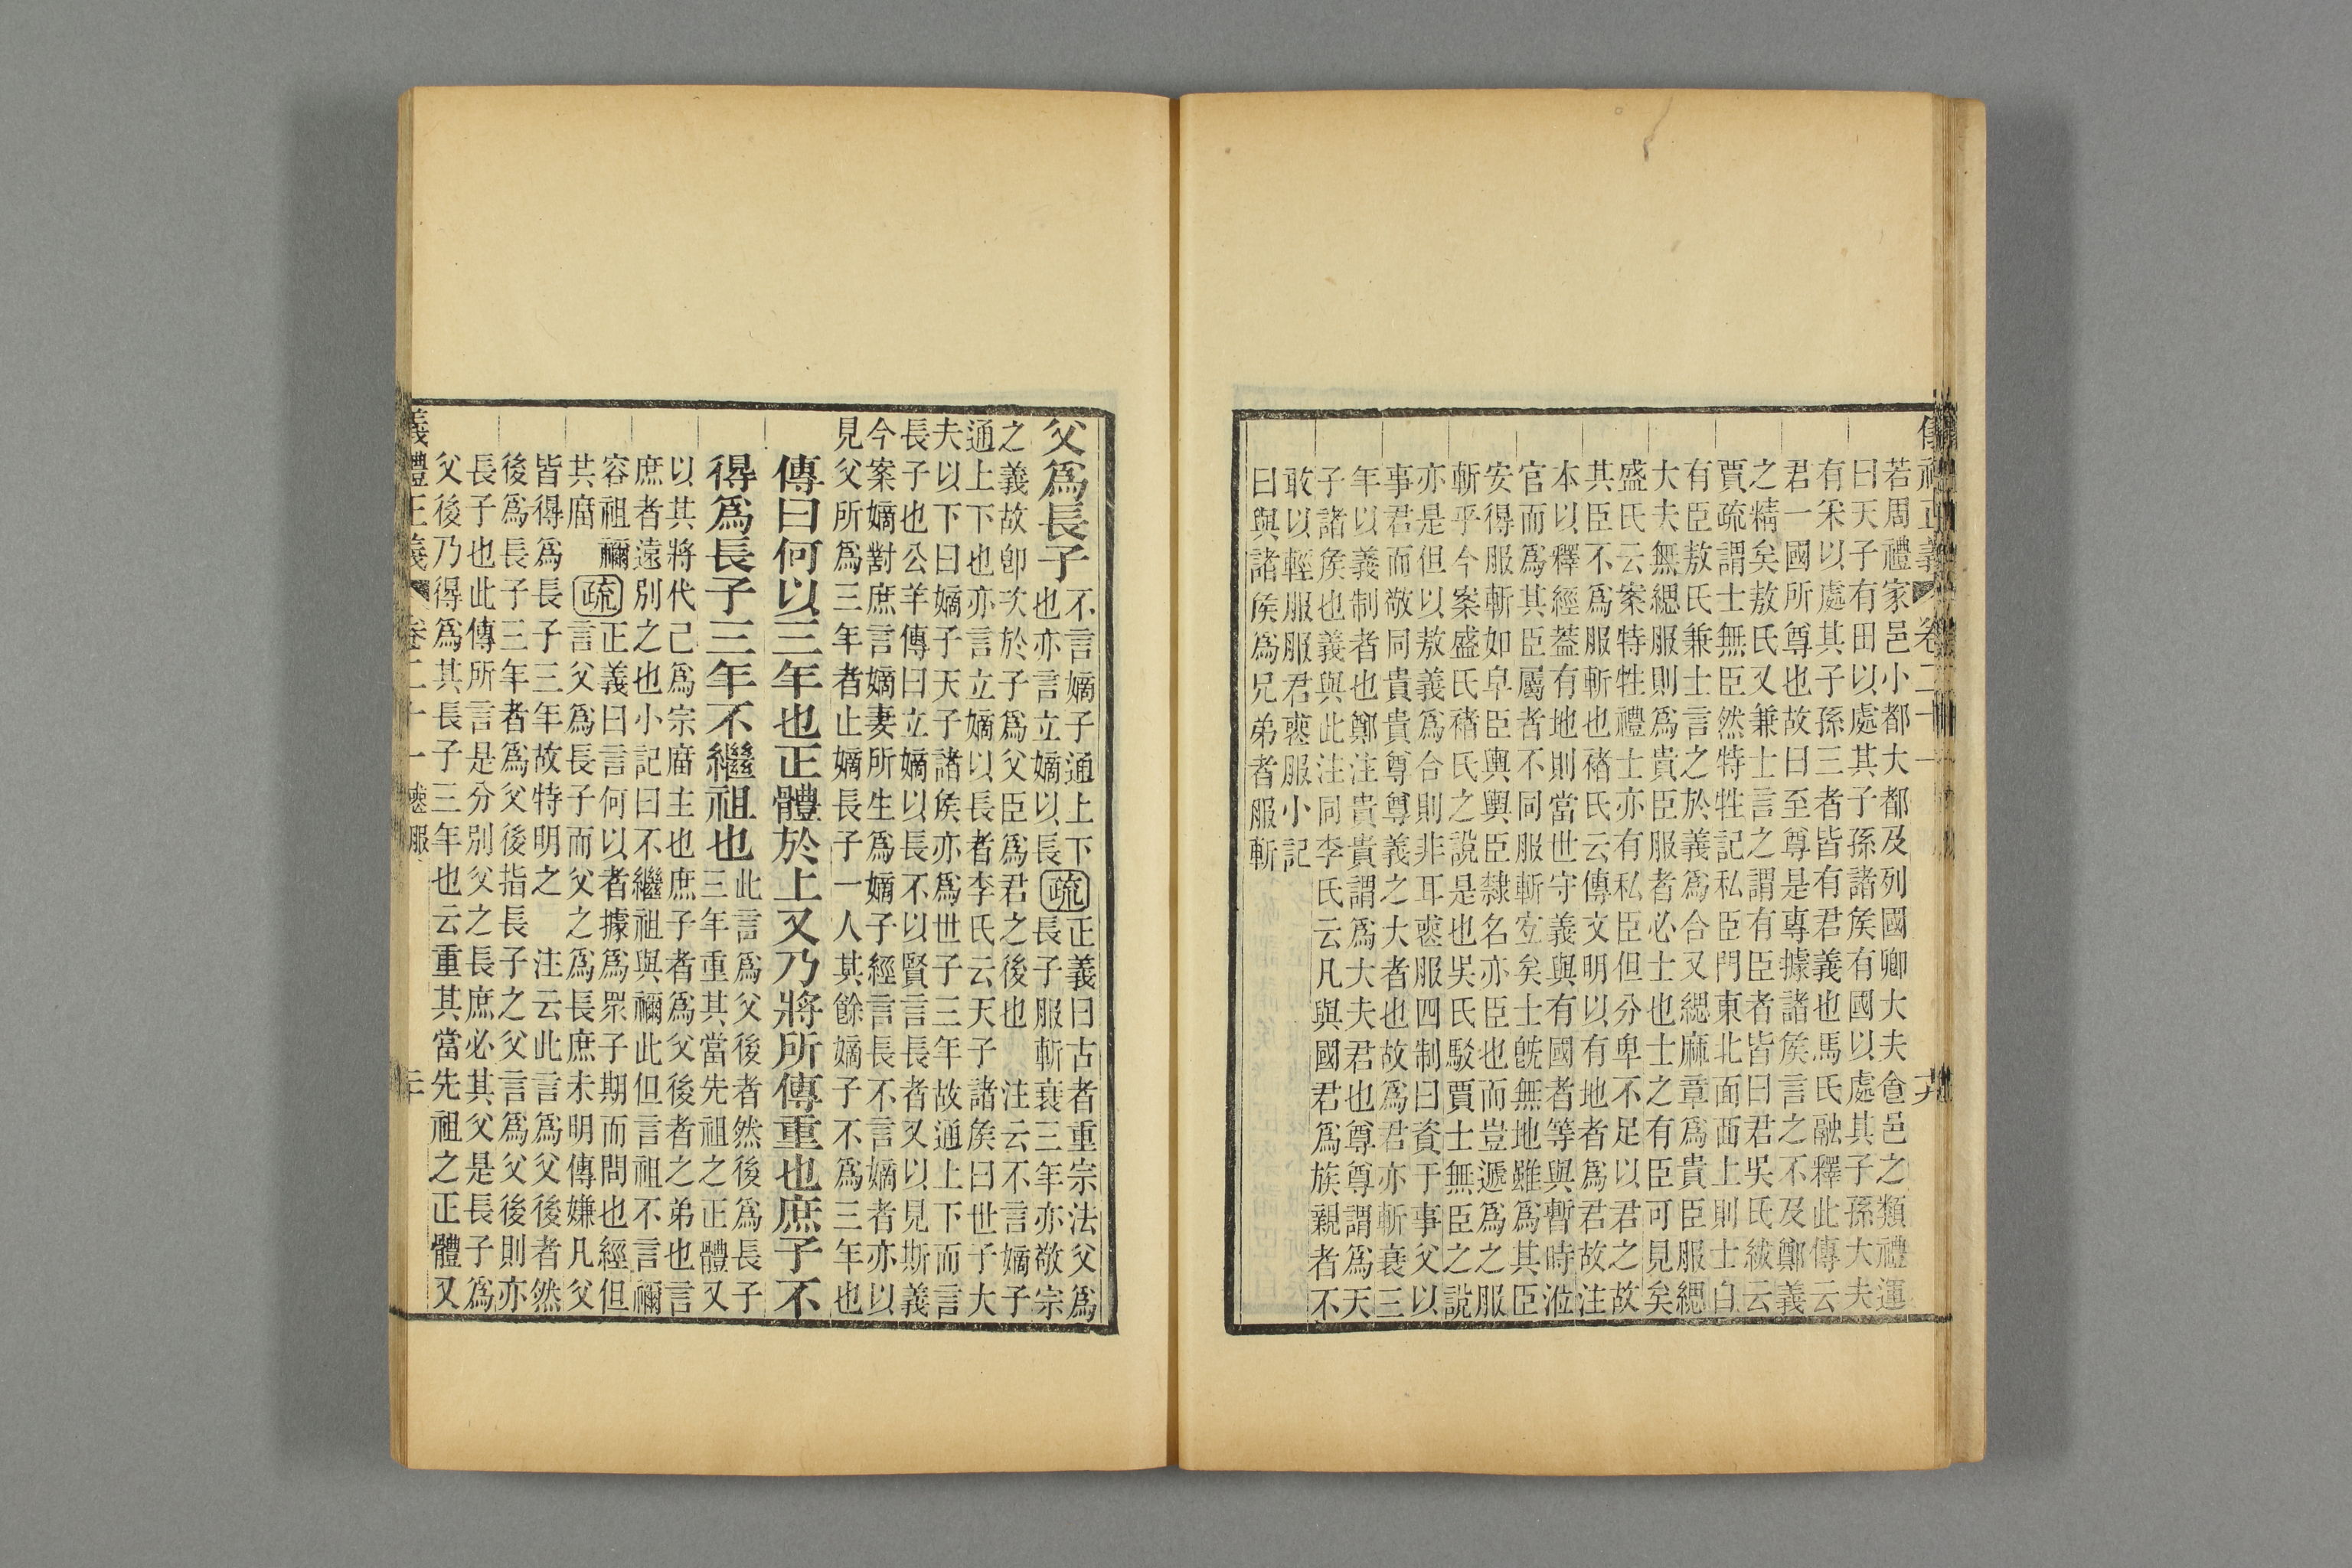 儀禮正義 卷二十一
若周禮家邑小都大都及列國卿大夫食邑之類禮運
曰天子有田以處其子孫諸侯有國以處其子孫大夫
有采以處其子孫三者皆有君義也馬氏融釋此傳云
君一國所尊也故曰至尊是專據諸侯言之不及鄭義
之精矣敖氏又兼士言之謂有臣者皆曰君吳氏紱云
賈疏謂士無臣然特牲記私臣門東北面西上則士自
有臣敖氏兼士言之於義爲合又緦麻章爲貴臣服緦
大夫無緦服則爲貴臣服者必士也士之有臣可見矣
盛氏云案特牲禮士亦有私臣但分卑不足以君之故
其臣不爲服斬也褚氏云傳文明以有地者爲君故注
本以釋經葢有地則當世守義與有國者等與暫時涖
官而爲其臣屬者不同服斬宐矣士旣無地雖爲其臣
安得服斬如皁臣輿輿臣隸名亦臣也而豈遞爲之服
斬乎今案盛氏褚氏之說是也吳氏駁賈士無臣之說
亦是但以敖義爲合則非耳喪服四制曰資于事父以
事君而敬同貴貴尊尊義之大者也故爲君亦斬衰三
年以義制者也鄭注貴貴謂爲大夫君也尊尊謂爲天
子諸侯也義與此注同李氏云凡與國君爲族親者不
敢以輕服服君喪服小記
曰與諸侯爲兄弟者服斬
父爲長子
不言嫡子通上下
也亦言立嫡以長
疏
正義曰古者重宗法父爲
長子服斬衰三年亦敬宗
之義故卽次於子爲父臣爲君之後也 注云不言嫡子
通上下也亦言立嫡以長者李氏云天子諸侯曰世子大
夫以下曰嫡子天子諸侯亦爲世子三年故通上下而言
長子也公羊傳曰立嫡以長不以賢言長者又以見斯義
今案嫡對庶言嫡妻所生爲嫡子經言長不言嫡者亦以
見父所爲三年者止嫡長子一人其餘嫡子不爲三年也
傳曰何以三年也正體於上又乃將所傳重也庶子不
得爲長子三年不繼祖也
此言爲父後者然後爲長子
三年重其當先祖之正體又
以其將代己爲宗廟主也庶子者爲父後者之弟也言
庶者遠別之也小記曰不繼祖與禰此但言祖不言禰
容祖禰
共廟
疏
正義曰言何以者據爲眾子期而問也經但
言父爲長子而父之爲長庶未明傳嫌凡父
皆得爲長子三年故特明之 注云此言爲父後者然
後爲長子三年者爲父後指長子之父言爲父後則亦
長子也此傳所言是分別父之長庶必其父是長子爲
父後乃得爲其長子三年也云重其當先祖之正體又
義禮正義 卷二十一 喪服